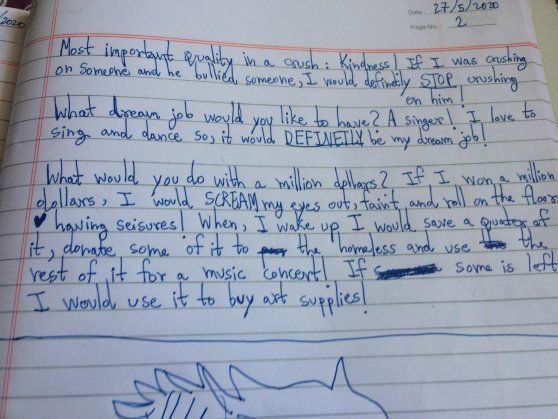 /2020
Date: 27/5/2020
Page No.: 2
Most important quality in a crush: Kindness! If I was crushing
on someone and he bullied someone, I would definetly STOP crushing
on him!
What dream job would you like to have? A singer! I love to
sing and dance so, it would DEFINETLY be my dream job!
What would you do with a million dollars? If I won a million
dollars, I would SCREAM my eyes out, faint, and roll on the floor
having seisures! When, I wake up I would save a quater of
it, donate some of it to the homeless and use the
rest of it for a music concert! If some is left
I would use it to buy art supplies!